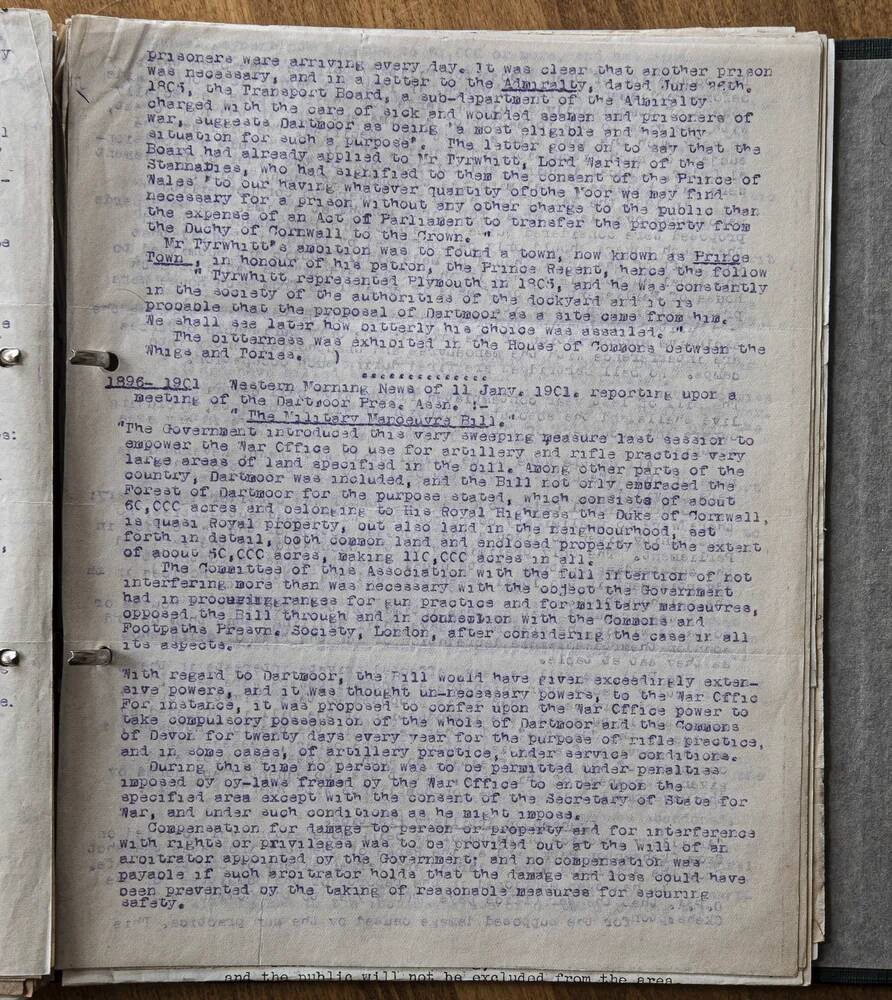 prisoners were arriving every day. It was clear that another prison
was necessary, and in a letter to the Admiralty, dated June
1805, the Transport Board, a sub-department of the Admiralty
charged with the care of sick and wounded seamen and prisoners of
war, suggests Dartmoor as being "a most eligible and healthy
situation for such a purpose". The letter goes on to say that the
Board had already applied to Mr Tyrwhitt, Lord Warden of the
Stannaries, who had signified to them the consent of the Prince of
Wales "to our having whatever quantity ofothe Moor we may find
necessary for a prison without any other charge to the public than
the expense of an Act of Parliament to transfer the property from
the Duchy of Cornwall to the Crown. "
Mr Tyrwhitt's ambition was to found a town, now known as Prince
Town , in honour of his patron, the Prince Regent, hence the follow
" Tyrwhitt represented Plymouth in 1805, and he was constantly
in the society of the authorities of the dockyard and it is
probable that the proposal of Dartmoor as a site came from him.
We shall see later how bitterly his choice was assailed. "
The bitterness was exhibited in the House of Commons between the
Whigs and Tories. )
1896- 1901 Western Morning News of 11 Jany. 1901. reporting upon a
meeting of the Dartmoor Pres. Assn. :-
" The Military Manoeuvre Bill."
"The Government introduced this very sweeping measure last session to
empower the War Office to use for artillery and rifle practice very
large areas of land specified in the bill. Among other parts of the
country, Dartmoor was included, and the Bill not only embraced the
Forest of Dartmoor for the purpose stated, which consists of about
60,000 acres and belonging to His Royal Highness the Duke of Cornwall,
is quasi Royal property, but also land in the neighbourhood, set
forth in detail, both common land and enclosed property to the extent
of about 50,000 acres, making 110,000 acres in all.
The Committee of this Association with the full intention of not
interfering more than was necessary with the object the Government
had in procuring ranges for gun practice and for military manoeuvres,
opposed the Bill through and in connection with the Commons and
Footpaths Presvn. Society, London, after considering the case in all
its aspects.
With regard to Dartmoor, the Bill would have given exceedingly exten-
sive powers, and it was thought un-necessary powers, to the War Offic
For instance, it was proposed to confer upon the War Office power to
take compulsory possession of the whole of Dartmoor and the Commons
of Devon for twenty days every year for the purpose of rifle practice,
and in some cases, of artillery practice, under service conditions.
During this time no person was to be permitted under penalties
imposed by by-laws framed by the War Office to enter upon the
specified area except with the consent of the Secretary of State for
War, and under such conditions as he might impose.
Compensation for damage to person or property and for interference
with rights or privileges was to be provided but at the will of an
arbitrator appointed by the Government; and no compensation was
payable if such arbitrator holds that the damage and loss could have
been prevented by the taking of reasonable measures for securing
safety.
and the public will not be excluded from the area